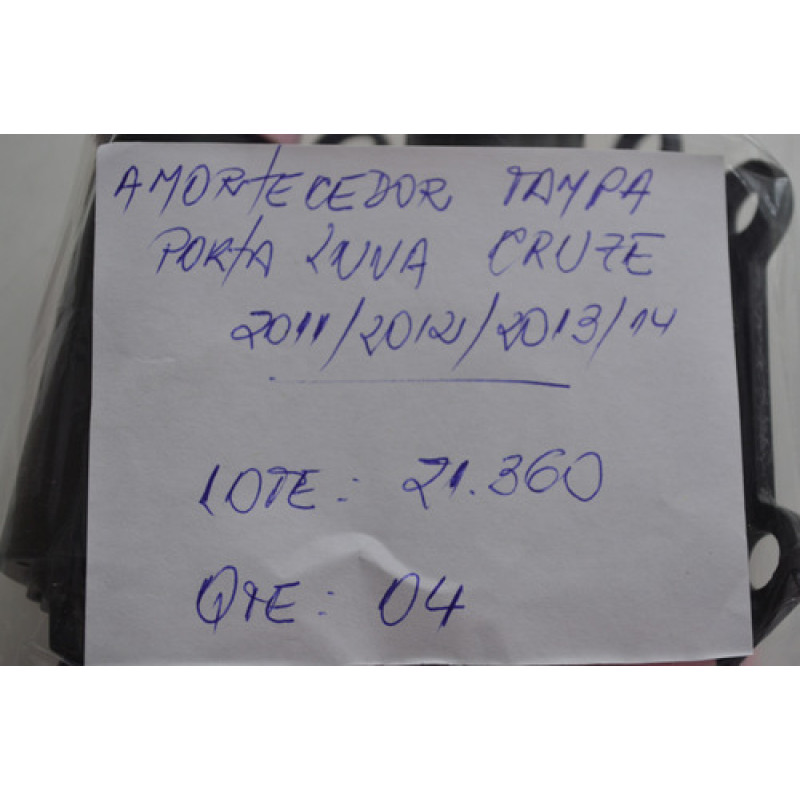 AMORTECEDOR TAMPA
PORTA LUVA CRUZE
2011/2012/2013/14
LOTE: 21.360
QTE: 04